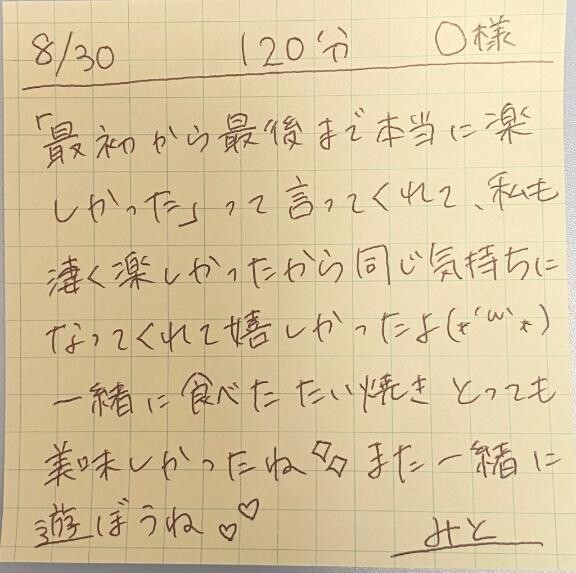 8/30 120分 ○様
「最初から最後まで本当に楽
しかった」って言ってくれて、私も
凄く楽しかったから同じ気持ちに
なってくれて嬉しかったよ(*'ω'*)
一緒に食べたたい焼きとっても
美味しかったね◇◇また一緒に
遊ぼうね♡♡ みと